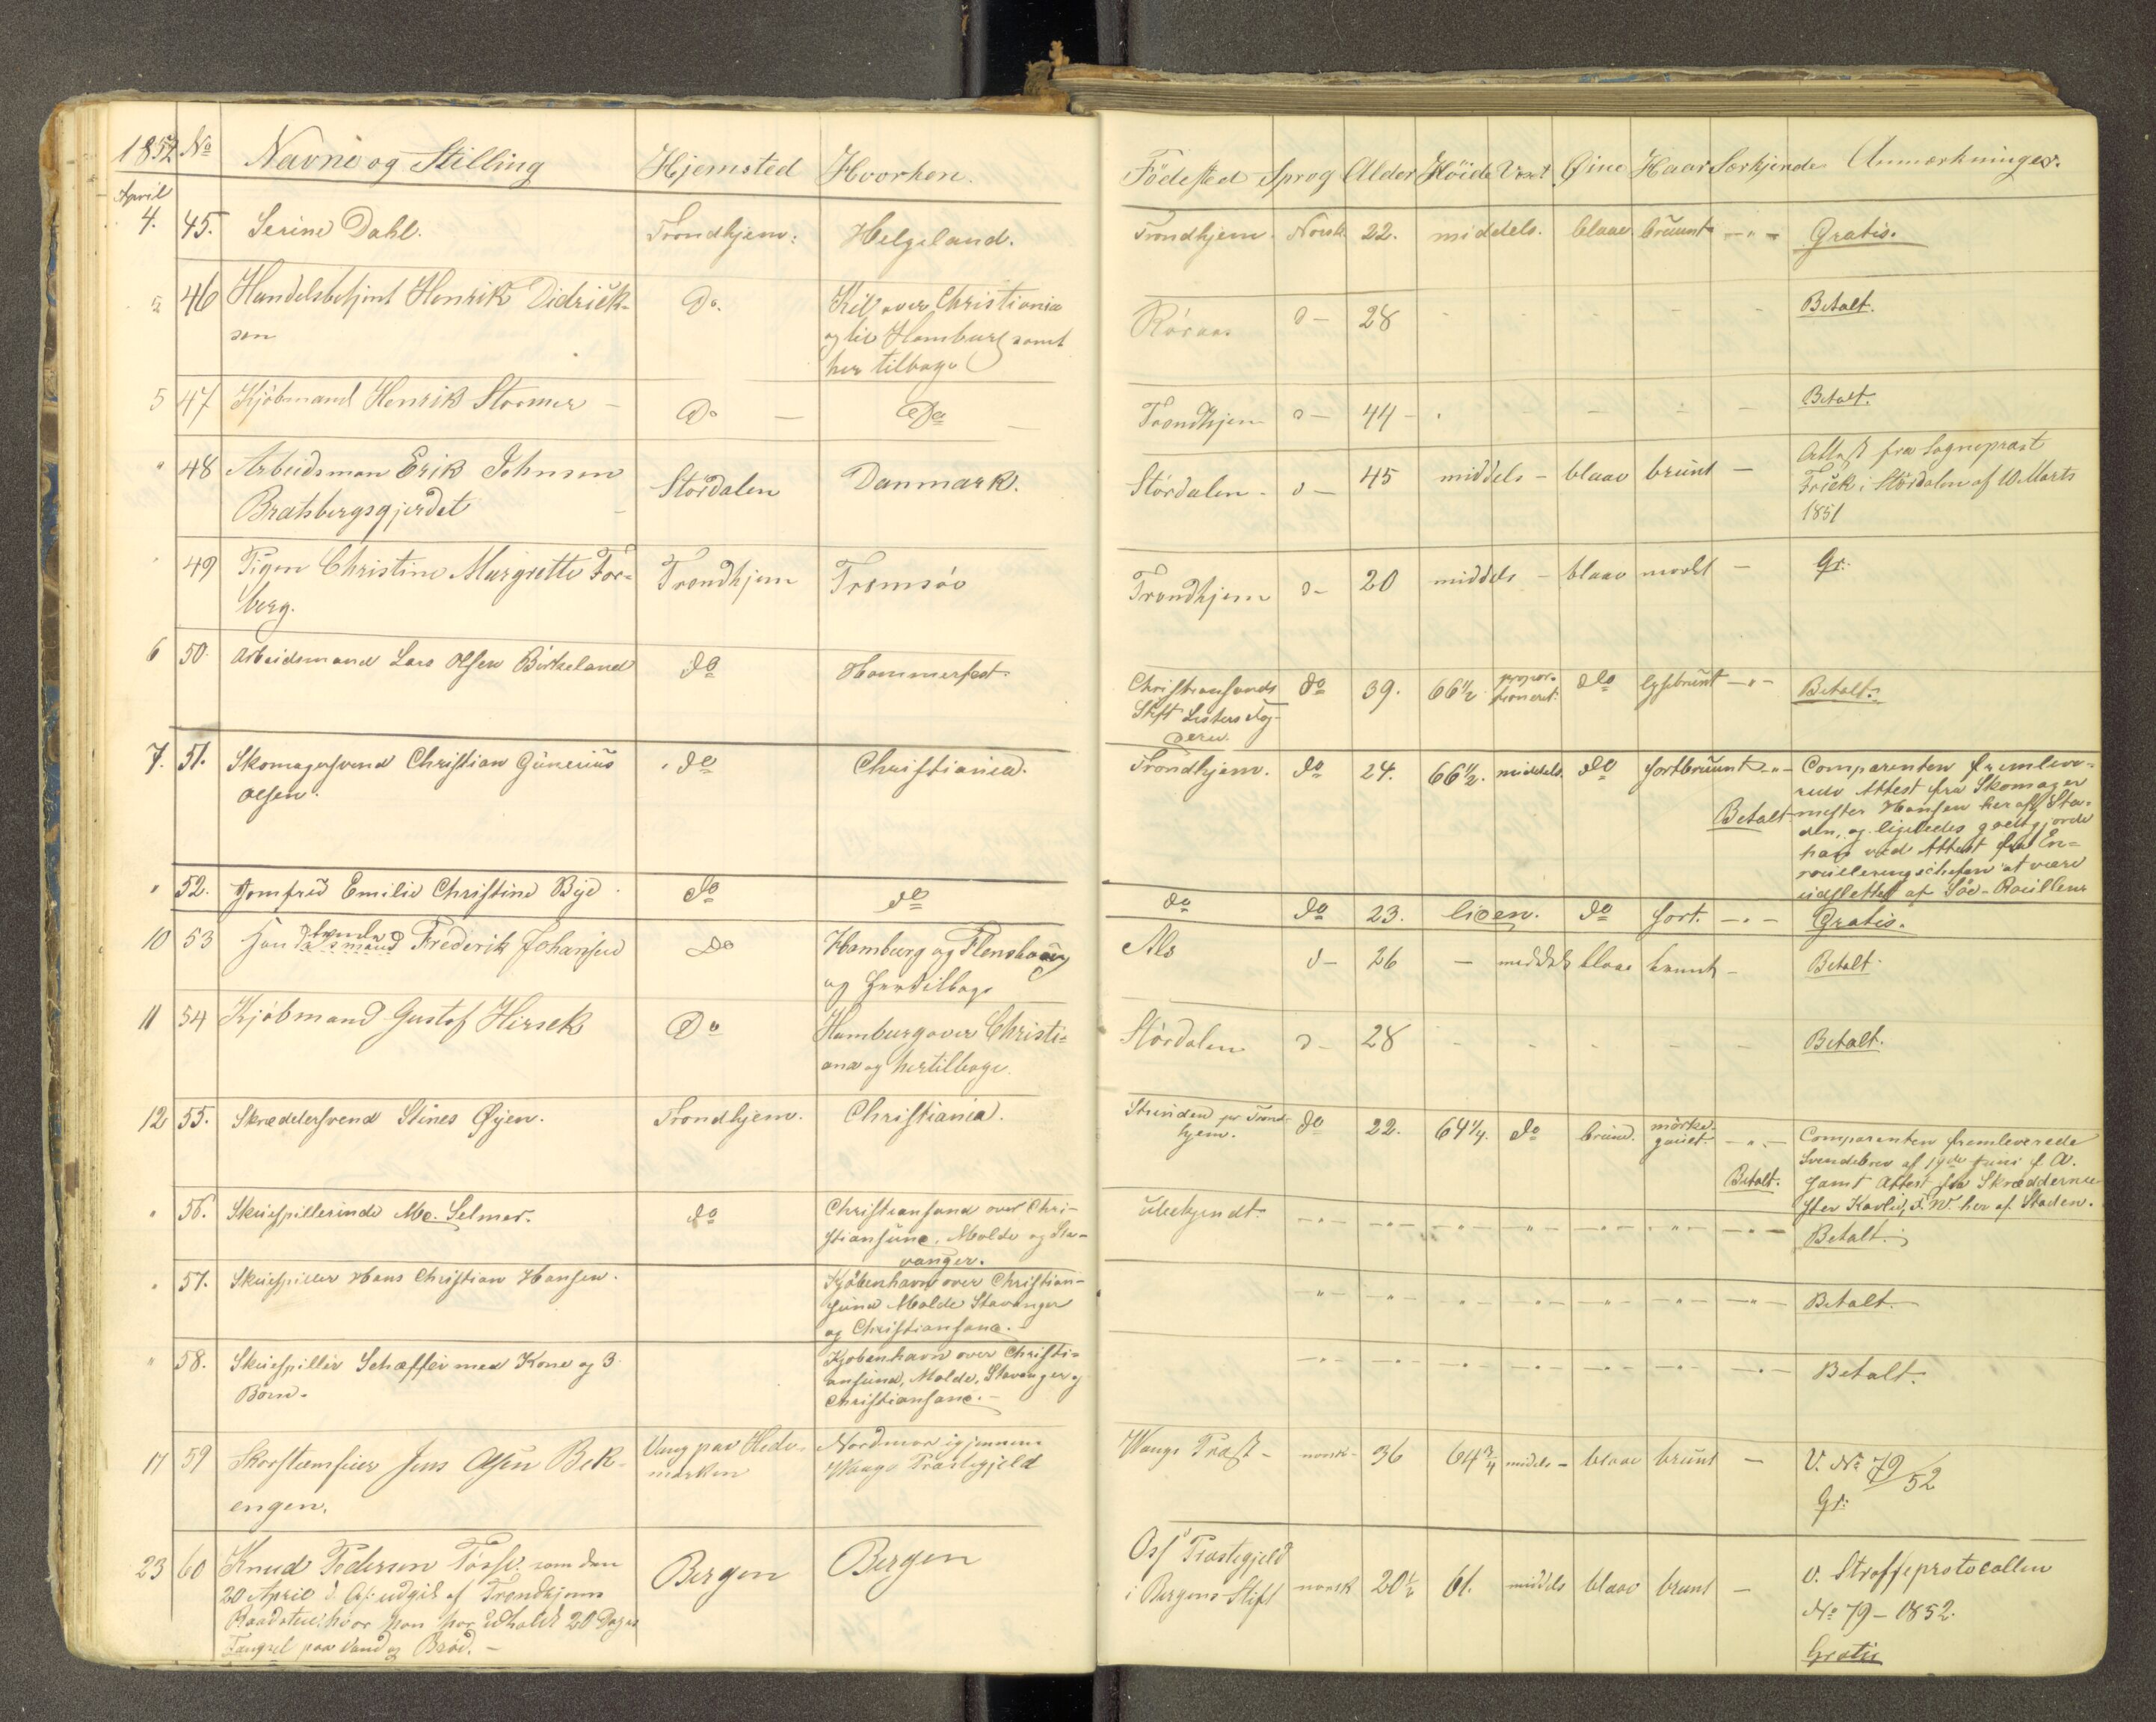 1852 No Navne og Stilling Hjemsted Hvorhen.
April
4. 45. Serine Dahl. Trondhjem. Helgeland.
5 46 Handelsbetjent Henrik Didrick- Do. Kil over Christiania
sen og til Hamburg samt
her tilbage
5 47 Kjöbmand Henrik Stormer — Do — Do —
" 48 Arbeidsman Erik Johnsen Stördalen Danmark.
Bratsbergsgjerdet
" 49 Pigen Christine Margrette For= Trondhjem Tromsöe
berg.
6 50. Arbeidsmand Lars Olsen Birkeland do Hammerfest.
7. 51. Skomagersvend Christian Gunerius do Christiania.
Olsen.
" 52. Jomfru Emilie Christine Bye. do do
10 53 Handelsmand Frederik Johansen Do Hamburg og Flensborg
og hertilbage
11 54 Kjöbmand Gustof Hirsch Do Hamburg over Christi=
ana og hertilbage.
12 55. Skræddersvend Stines Øyen. Trondhjem. Christiania.
" 56. Skuespillerinde Me. Selmer. do Christiansand over Chri-
stiansund, Molde og Sta-
vanger.
" 57. Skuespiller Hans Christian Hansen. Kjöbenhavn over Christian-
sund Molde Stavanger
og Christiansand.
" 58. Skuespiller Schæffer med Kone og 3 Kjobenhavn over Christi=
Börn. ansund, Molde, Stavanger og
Christiansand.
17 59 Skorsteensfeier Jens Olsen Bek- Vang paa Hede- Nordmør igjennem
engen. marken Wangs Præstegjeld
23 60 Knud Pedersen Tösse. som den Bergen Bergen
20 April d. A. udgik af Trondhjems
Raadstue, hvor han har udholdt 20 Dages
Fængsel paa Vand og Bröd. —
Födested Sprog Alder Höide Vext Øine Haar Særkjende Anmærkninger.
Trondhjem. Norsk 22. middels. blaae bruunt — " — Gratis.
Röraas d — 28 - - - - - Betalt.
Trondhjem d — 44 - - - - - Betalt.
Stördalen - d — 45 middels — blaae brunt — Attest fra Sognepræst
Frick i Stördalen af 10 Marts
1851
Trondhjem d — 20 middels — blaae morkt — Gr.
Christiansands do 39. 66½ propor- do lysebrunt — " — Betalt.
Stift Listers og tioneret.
Trondhjem. do 24. 66½. middels. do sortbruunt - " - Comparenten fremleve-
rede Attest fra Skomager
Betalt mester Hansen her af Sta-
den, og ligeledes godtgjorde
han ved Attest fra En=
roulleringschefen at være
udslettet af Söe-Roullen
do do 23. liden. do sort. — " — Gratis.
Als d — 26 — middels blaae brunt — Betalt
Stördalen d — 28 - - - - - Betalt.
Strinden pr Trond- do 22. 64¼. do bruun. mörke- — " — Comparenten fremleverede
hjem. guult. Svendebrev af 19de Juni f. A.
Betalt. samt Attest fra Skræddermei-
ster Kavlid, d. N. her af Staden.
ubekjendt. — " — — " — — " — — " — — " — — " — — " — Betalt.
— " — — " — — " — — " — — " — — " — — " — Betalt.
— " — — " — — " — — " — — " — — " — — " — Betalt.
Wangs Præst — norsk - 36 64¾ middels — blaae brunt — V. No 79/52
Gr.
Oss Præstegjeld
i Bergens Stift norsk 20½ 61. middels blaae brunt — v. Straffeprotocollen
No 79 - 1852.
Gratis